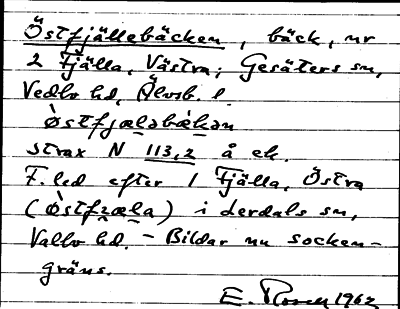 Östfjällebäcken, bäck, nr
2 Fjälla, Västra; Gesäters sn,
Vedbo hd, Älvsb. l.
òstfjæləbækən
strax N 113,2 å ek.
F. led efter 1 Fjälla, Östra
(òstfjæla) i Lerdals sn,
Valbo hd. - Bildar nu socken-
gräns.
E. Rosen 1962